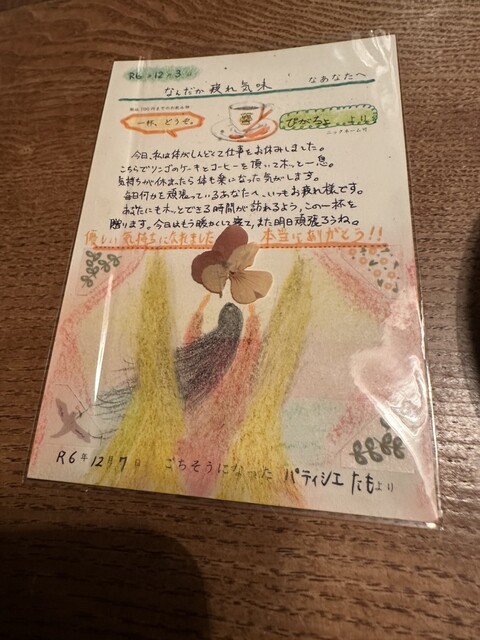 R6年12月3日
なんだか疲れ気味 なあなたへ
一杯、どうぞ。
ぴがちょ より
ニックネーム可
今日、私は体がしんどくて仕事をお休みしました。
こちらでリンゴのケーキとコーヒーを頂いてホッと一息。
気持ちが休まったら体も楽になった気がします。
毎日何かを頑張っているあなたへ、いつもお疲れ様です。
あなたにもホッとできる時間が訪れるよう、この一杯を
贈ります。今日はもう暖かくして寝て、また明日頑張ろうね。
優しい気持ちになれました 本当にありがとう!!
R6年12月7日 ごちそうになった パティシエ たもより